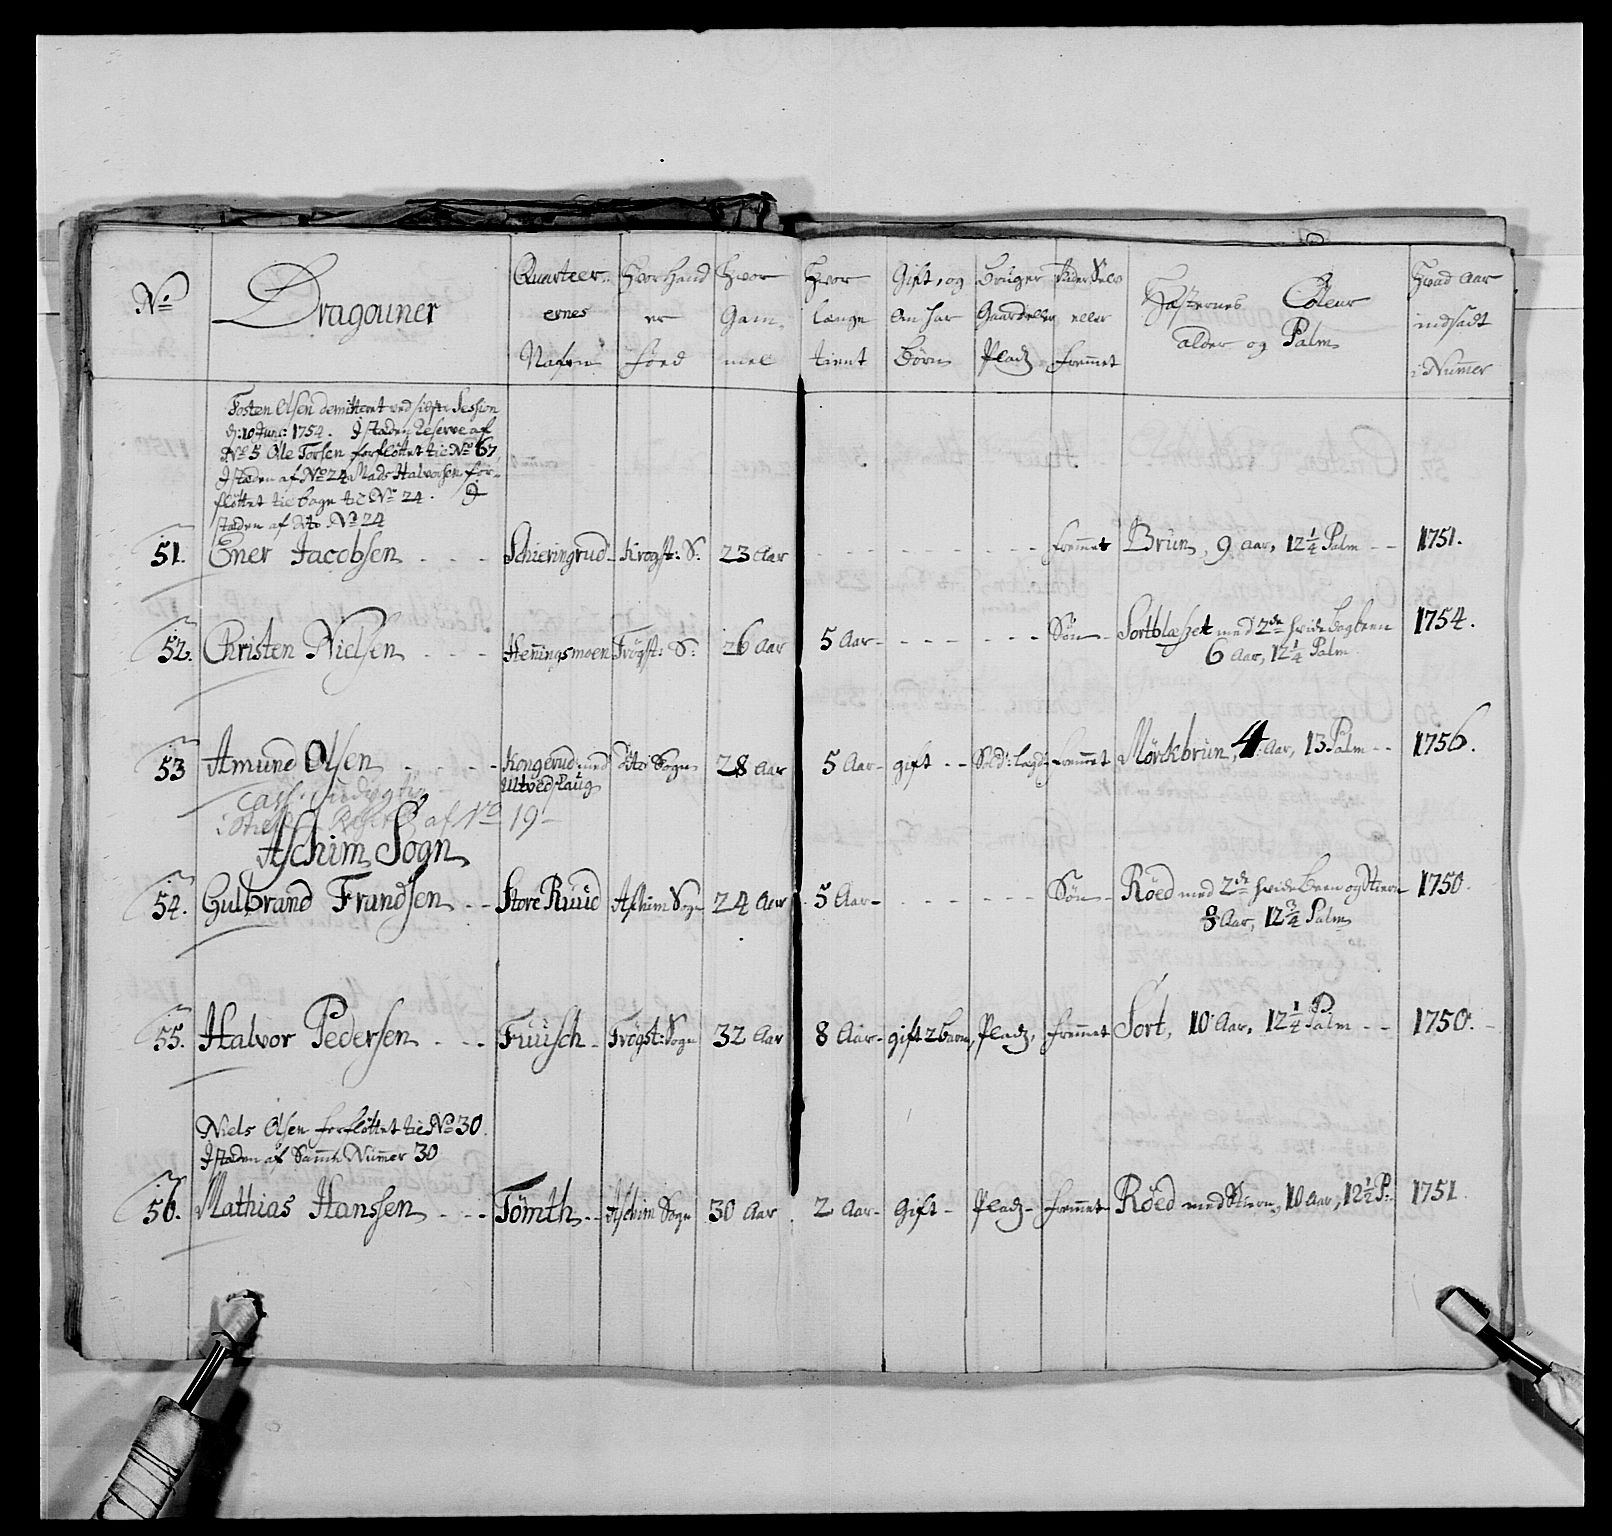 No
Dragouner
Quarteer-
ernes
Nafen
Hvor Hand
er
Føed
Hvor
Gam-
mel
Hvor
længe
tient
Gift, og
om har
Børn
Bruger
Gaard eller
Pladz
eller
fremmet
Hæsternes Coleur
alder og Palm
Hvad Aar
indsadt
i Numer
Tosten Olsen demitteret ved sidste Session
d: 10 Juni: 1754. I stæden Reserve af
No 5 Ole Torsen forfløttet til No 67
I stæden af No 24 Mads Halvorsen for-
fløttet tilbage til No 24. I
stæden af dto No 24
51. Ener Jacobsen - - - Schieringrud - Krogst: S. 23 Aar - - - - - - - fremmet Brun, 9 aar, 12 1/4 Palm - - 1751.
52. Christen Nielsen - - - Henningsmoen Trögst: S: 26 Aar 5 Aar - - - - - - Søn - Sortblæset med 2de hvide bagbeen 1754.
6 Aar, 12 1/4 Palm
53 Amund Olsen - - - - Kongerud med dito Sogn 28 Aar 5 Aar - gift - - Sold: lægd: fremmet Mörckbrun, 4 Aar, 13 Palm - - 1756.
Ultved flaug
Cass: Udygtig
af No 19 -
Aschim Sogn
54. Gulbrand Frandsen - - Store Ruud Aschim Sogn 24 Aar 5 Aar - - - - - - Søn - Röed med 2de hvide Been og Stiern 1750.
8 Aar, 12 3/4 Palm
55. Halvor Pedersen - - - Fuusch - Trögst: Sogn 32 Aar 8 Aar - gift 2 barn, Pladz, fremmet Sort, 10 Aar, 12 1/4 Palm - - 1750. -
Niels Olsen forfløttet til No 30.
I stæden af Samme Numer 30
56. Mathias Hanssen - - - Tömth - - Aschim Sogn 30 Aar 2 Aar - Gift - Pladz - fremmet Röed med Stiern, 10 Aar, 12 1/2 P: 1751.